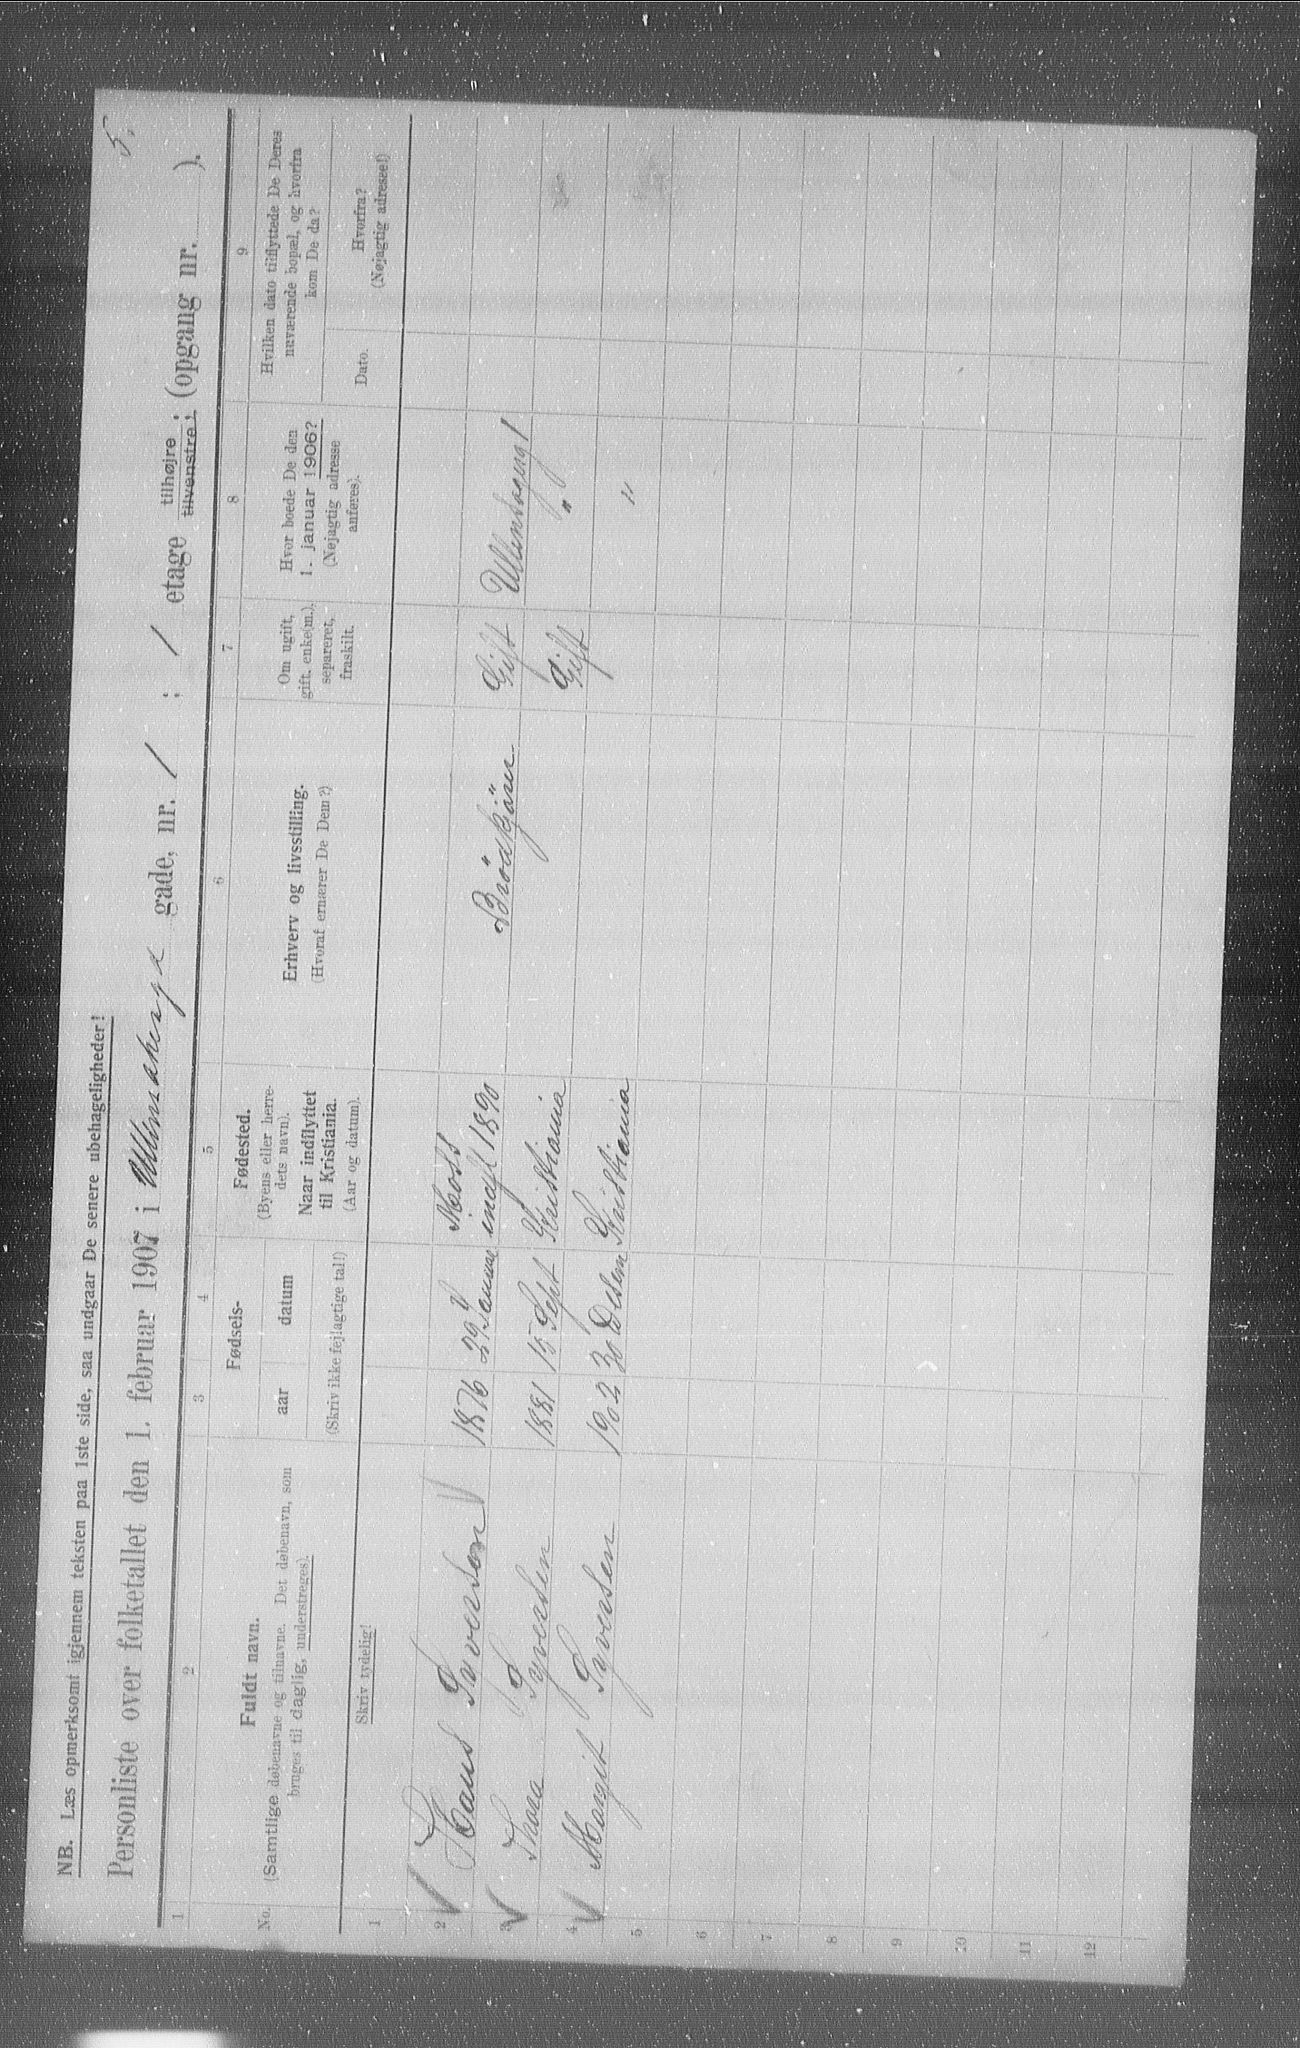 5.
NB. Læs opmerksomt igjennem teksten paa 1ste side, saa undgaar De senere ubehageligheder!
Personliste over folketallet den 1. februar 1907 i Ullensakergd gade, nr. 1 ; 1 etage tilhøjre ; tilvenstre; (opgang nr. ).
1 2 3 4 5 6 7 8 9
No.
Fuldt navn.
(Samtlige døbenavne og tilnavne. Det døbenavn, som
bruges til daglig, understreges).
Skriv tydelig!
Fødsels-
aar datum
(Skriv ikke fejlagtige tal!)
Fødested.
(Byens eller herre-
dets navn).
Naar indflyttet
til Kristiania.
(Aar og datum).
Erhverv og livsstilling.
(Hvoraf ernærer De Dem?)
Om ugift,
gift, enke(m.),
separeret,
fraskilt.
Hvor boede De den
1. januar 1906?
(Nøjagtig adresse
anføres).
Hvilken dato tilflyttede De Deres
nuværende bopæl, og hvorfra
kom De da?
Dato.
Hvorfra?
(Nøjagtig adresse!)
1
Moss
2 Hans Syversen 1876 29 Januar indfl 1890 Brödkjörer Gift Ullensagerg 1
3 Thora Syversen 1881 15 Sept Kristiania Gift "
4 Margit Syversen 1902 30 Desem Kristiania "
5
6
7
8
9
10
11
12